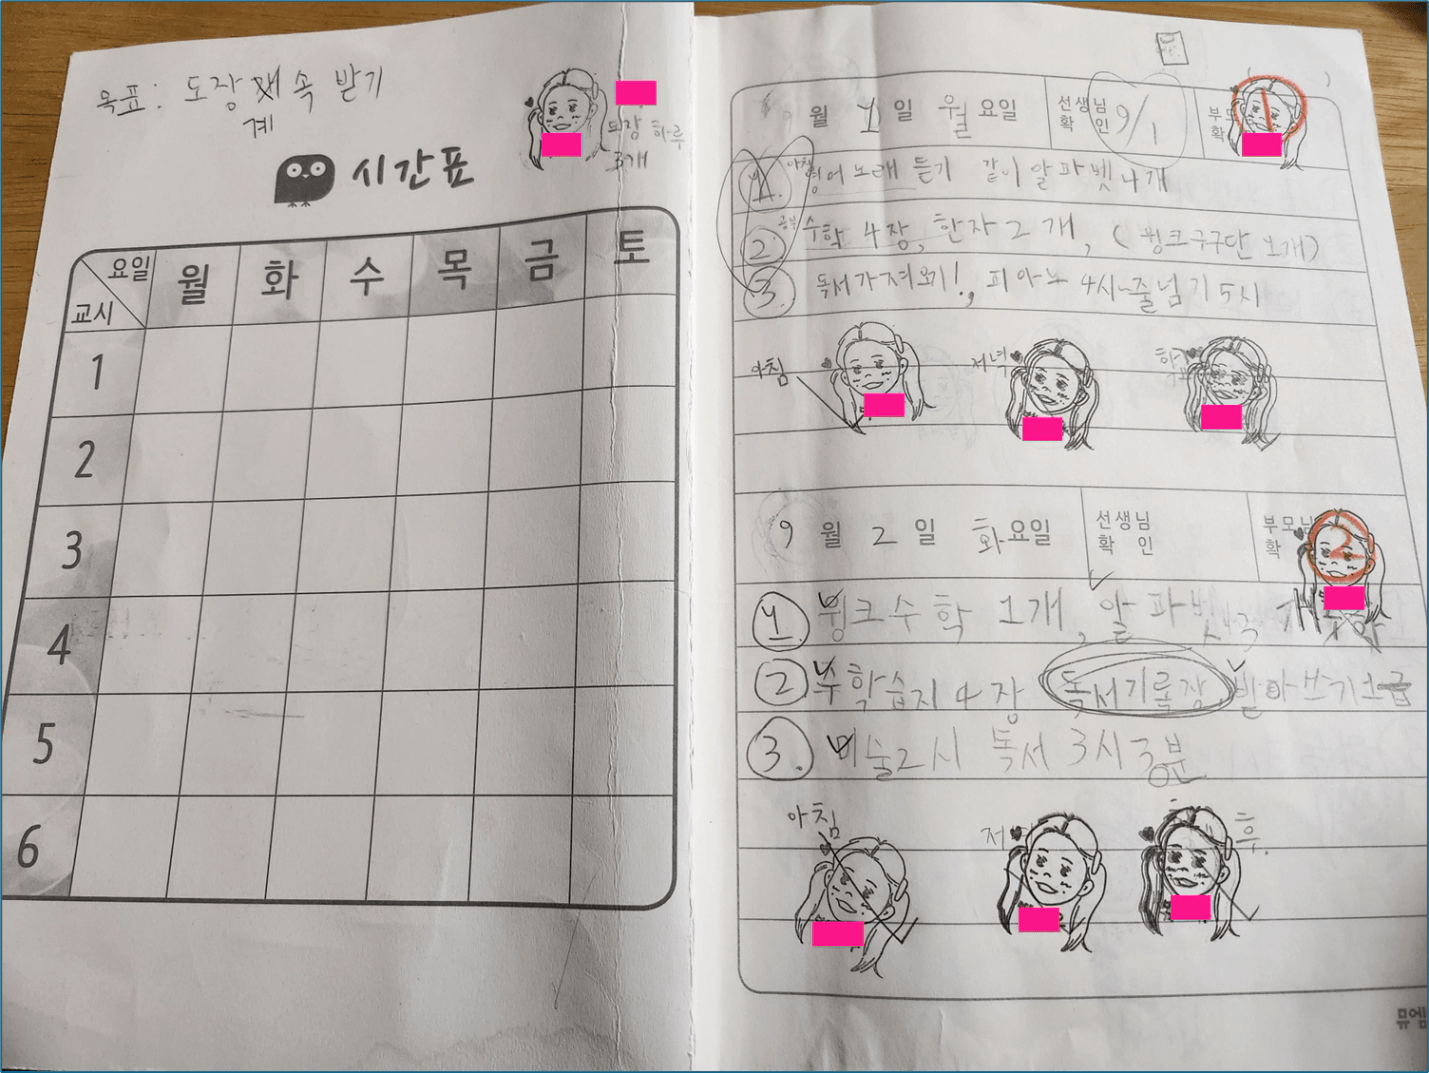 목표: 도장 계속 받기
도장 하루
3개
시간표
요일 월 화 수 목 금 토
교시
1
2
3
4
5
6
월 1 일 월 요일 선생님 확인 9/1
1. 아침 영어 노래 듣기 같이 알파벳 4개
2. 공부 수학 4장, 한자 2개, (윙크구구단 1개)
3. 독서가져오기!, 피아노 4시~줄넘기 5시
아침 저녁
9 월 2 일 화 요일 선생님 확인 부모님 확
1 윙크수학 1개, 알파벳
2 수학습지 4장 독서기록장, 받아쓰기 급
3. 미술2시 독서 3시 3분
아침 후.
뮤엠